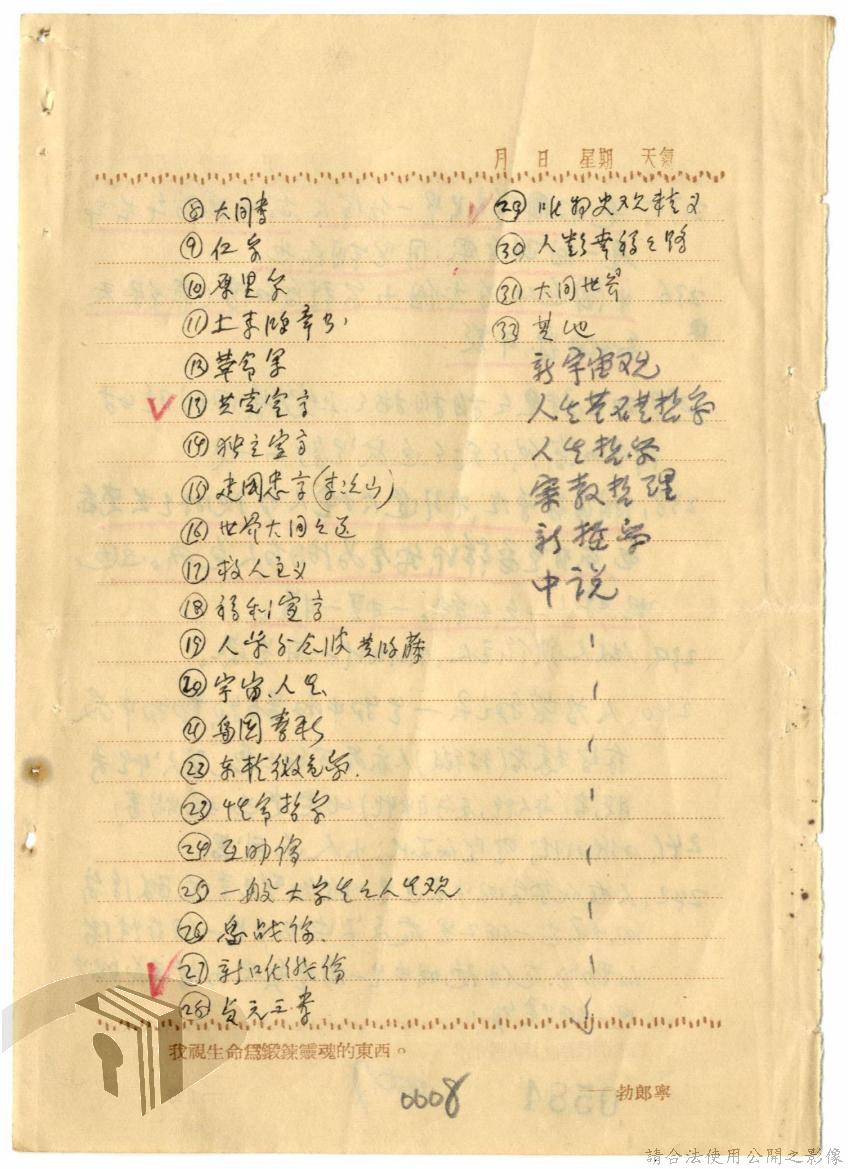 月 日 星期 天氣
⑧ 大同書
⑨ 仁学
⑩ 原墨尔
⑪
⑫ 革命军
⑬ 共党宣言
⑭ 独立宣言
⑮ 建国忠言(李次山)
⑯ 世界大同之道
⑰ 救人主义
⑱ 福利宣言
⑲ 人
⑳ 宇宙、人生
㉑
㉒
㉓ 性命哲学
㉔ 互助论
㉕ 一般大学生之人生观
㉖ 思战论.
㉗ 新唯能论
㉘ 贞元三書
㉙ 唯物史观精义
㉚ 人类幸福之路
㉛ 大同世界
㉜ 其他
新宇宙观
人生基礎哲学
人生哲学
宗教哲理
新哲学
中说
我視生命爲鍛鍊靈魂的東西。
——勃郎寧
0008
請合法使用公開之影像